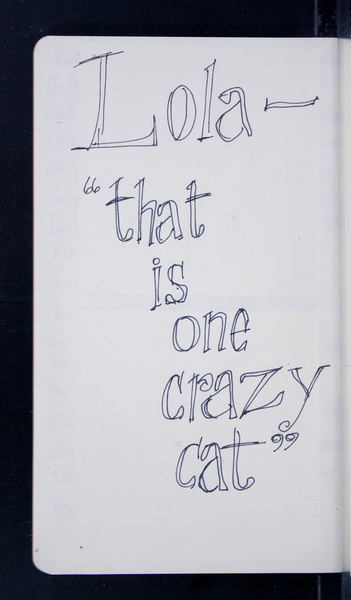 Lola —
“that
is
one
crazy
cat”